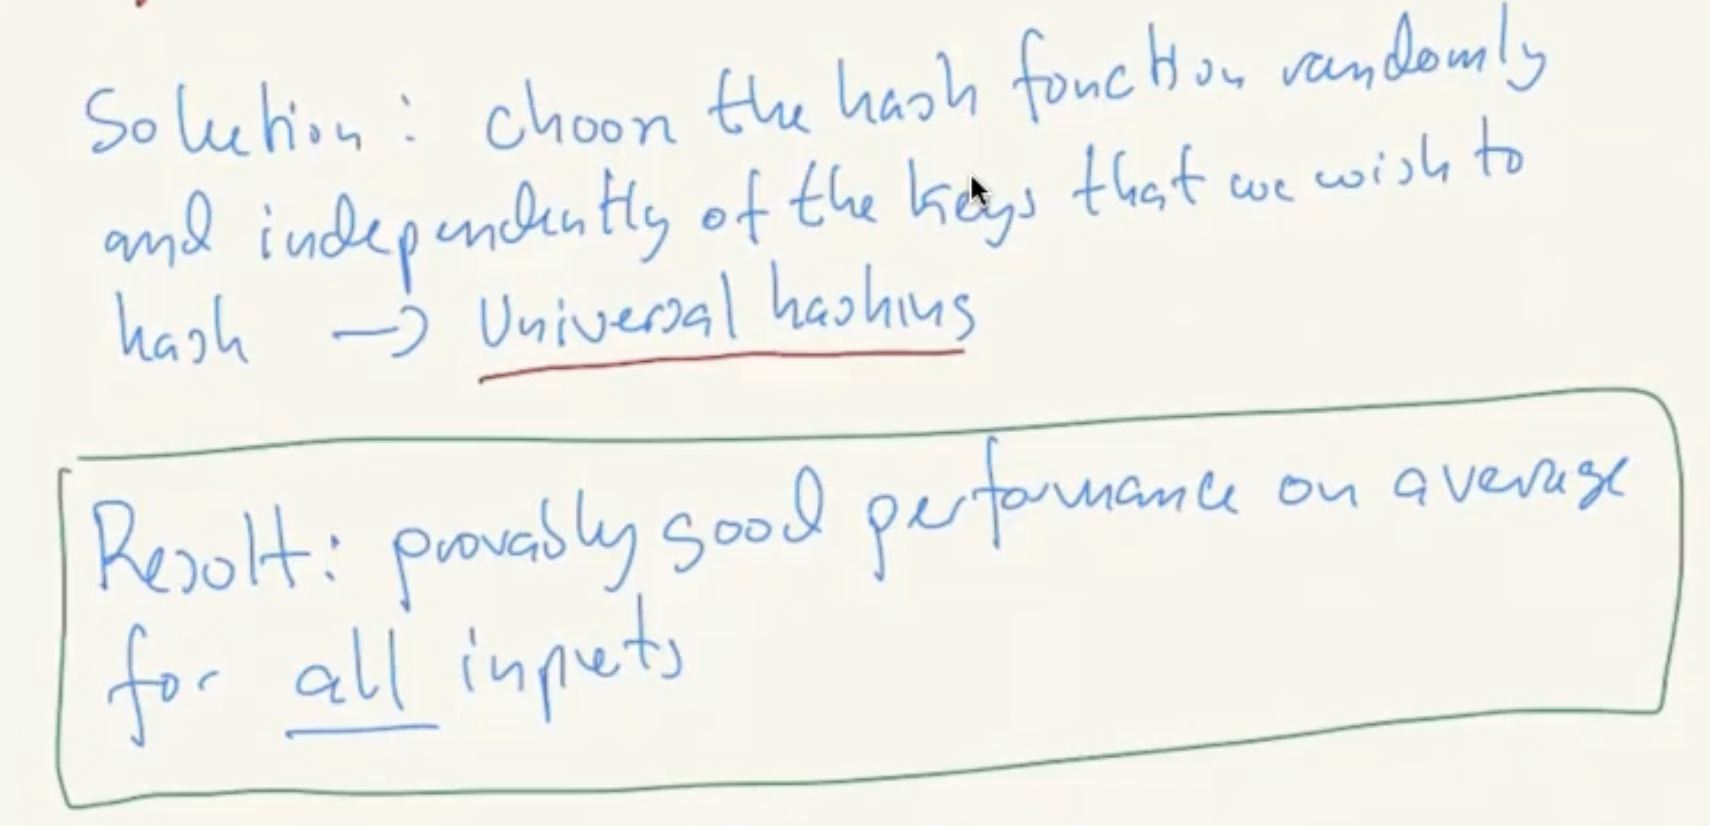 Solution: choose the hash function randomly
and independently of the keys that we wish to
hash → Universal hashing
Result: provably good performance on average
for all inputs